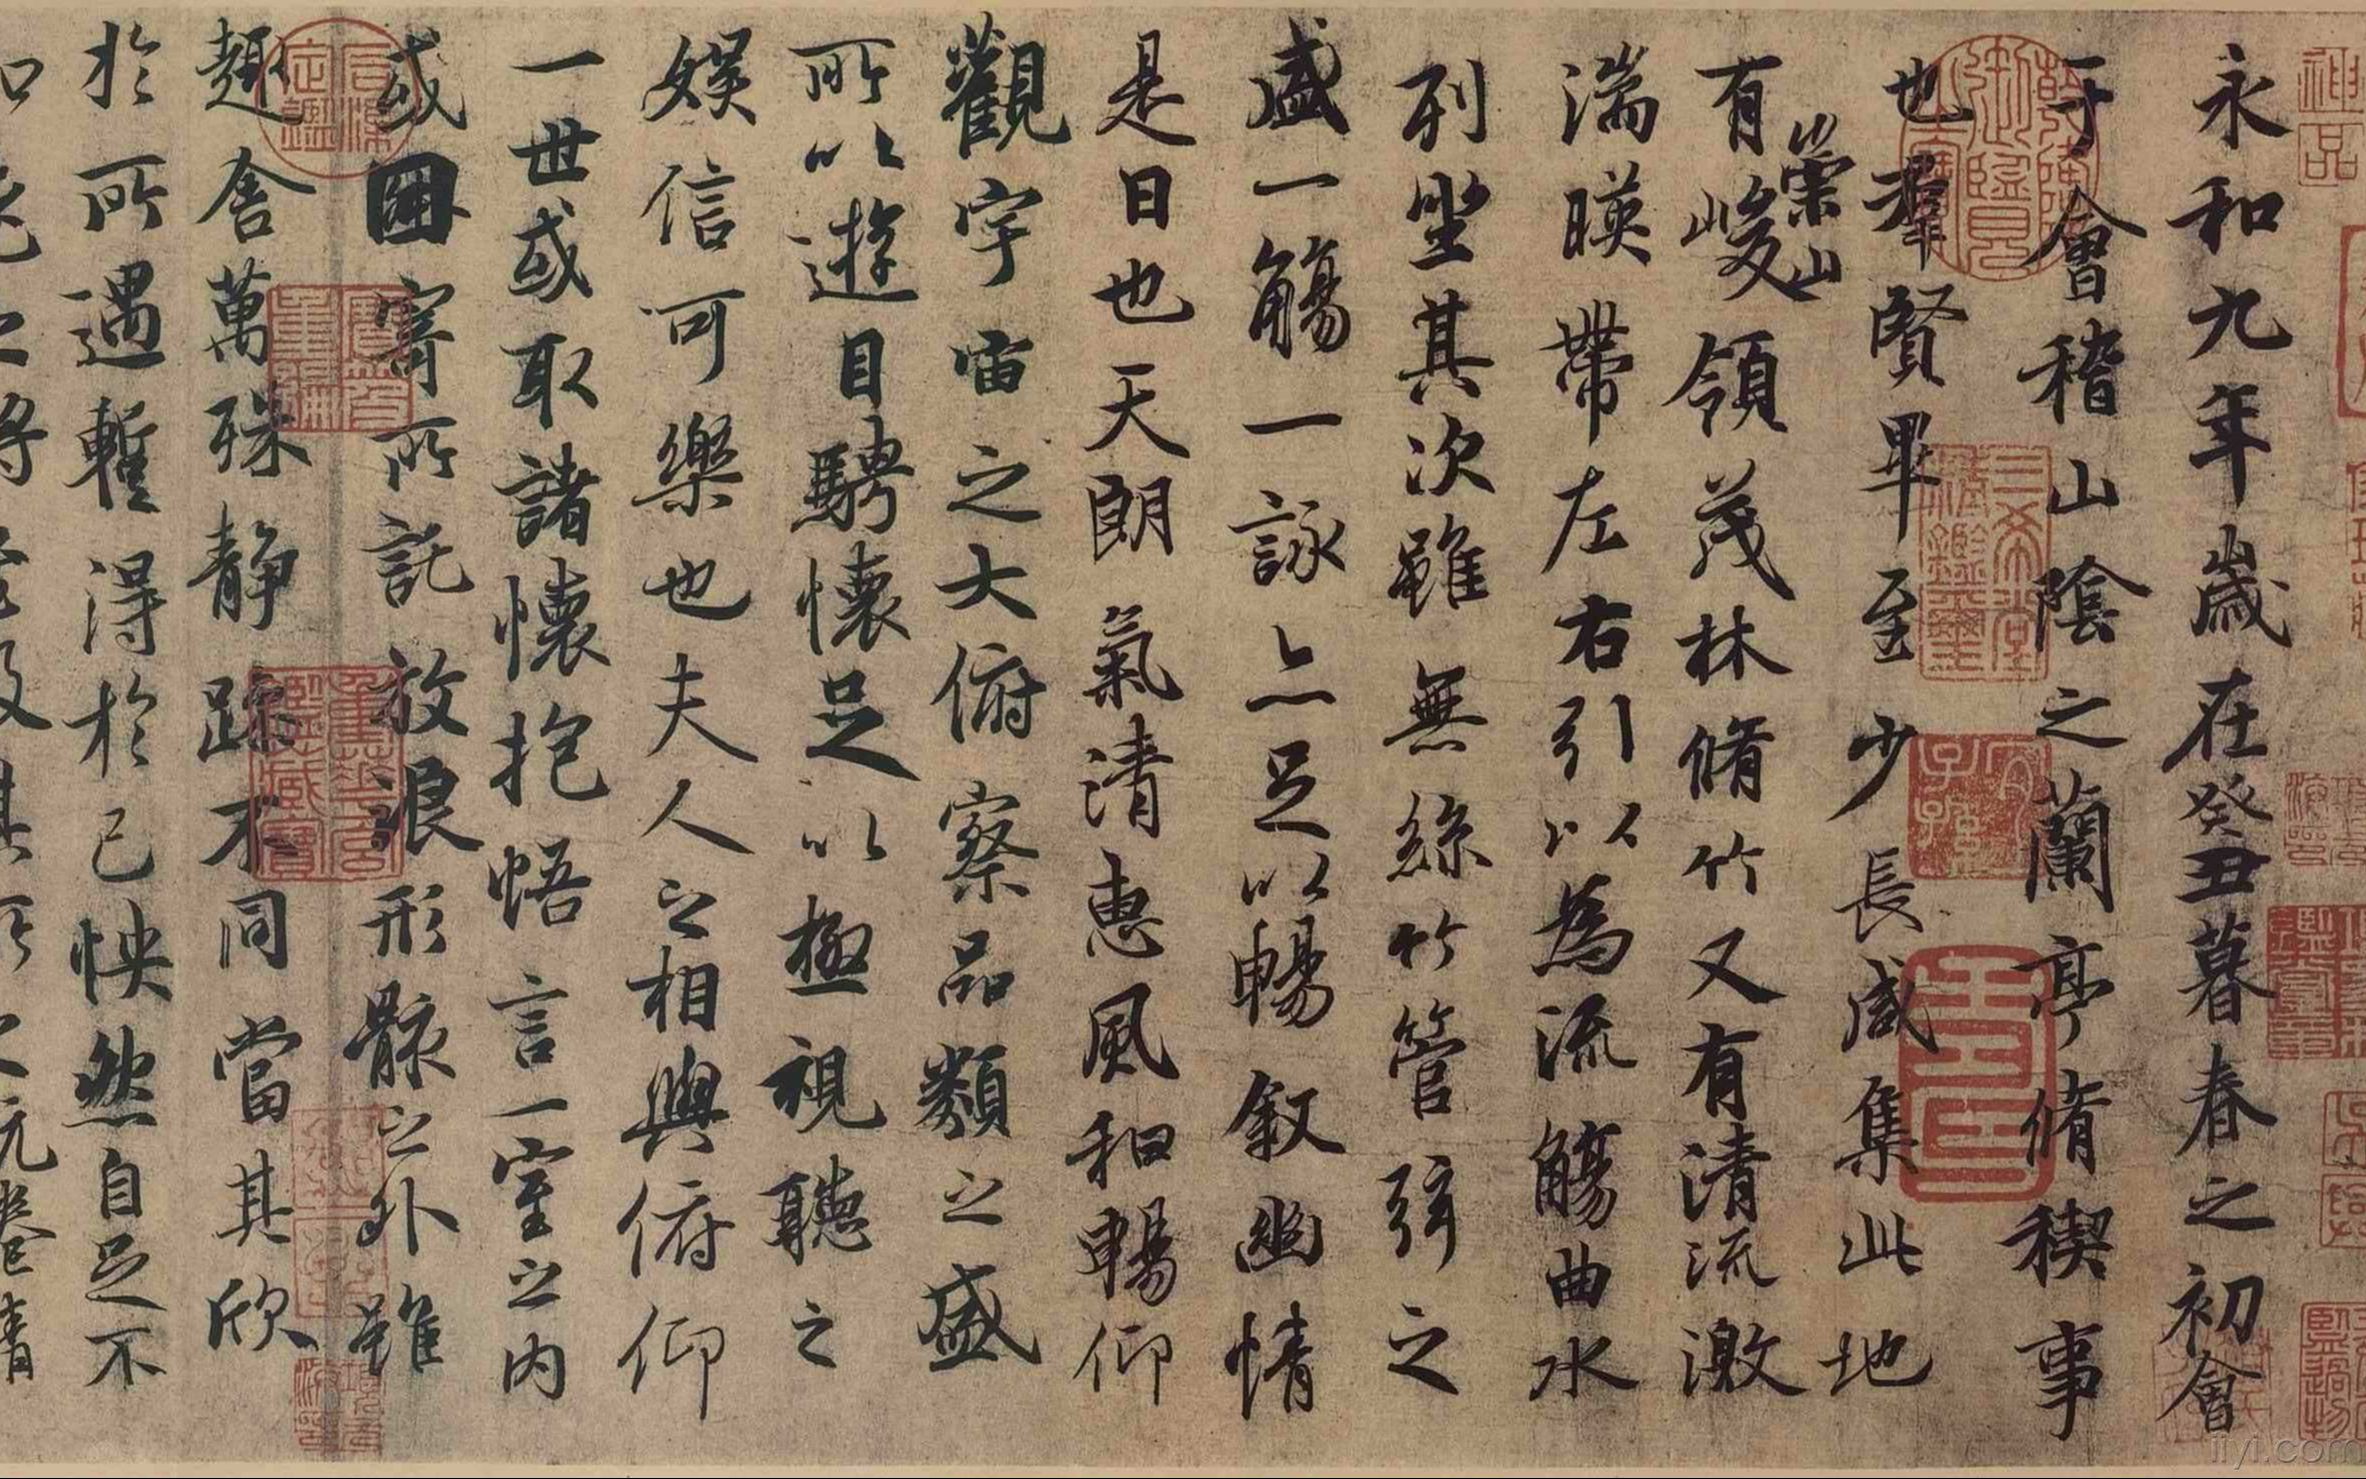 永和九年歲在癸丑暮春之初會
于會稽山陰之蘭亭脩禊事
也羣賢畢至少長咸集此地
有崇山峻領茂林脩竹又有清流激
湍暎帶左右引以為流觴曲水
列坐其次雖無絲竹管弦之
盛一觴一詠亦足以暢敘幽情
是日也天朗氣清惠風和暢仰
觀宇宙之大俯察品類之盛
所以遊目騁懷足以極視聽之
娛信可樂也夫人之相與俯仰
一世或取諸懷抱悟言一室之內
或因寄所託放浪形骸之外雖
趣舍萬殊靜躁不同當其欣
於所遇暫得於己怏然自足不
神品
三希堂精鑑璽
宜子孫
石渠定鑑
寶笈重編
iiyi.com